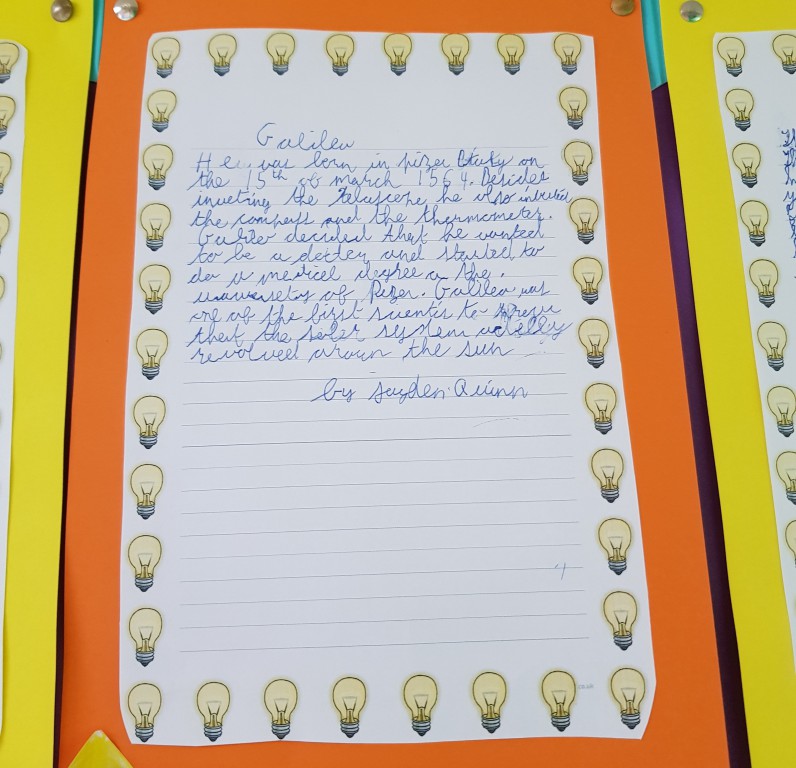 Galileo
He was born in pizer Etaly on
the 15th of march 1564. Besides
inveting the Telascope he also intvuted
the compass and the thermometer.
Galileo decided that he wanted
to be a docter and started to
do a medical degree a the
of Pizer. Galileo was
one of the first scientis to
that the solar system
revolved aroun the sun
by Jayden Quinn